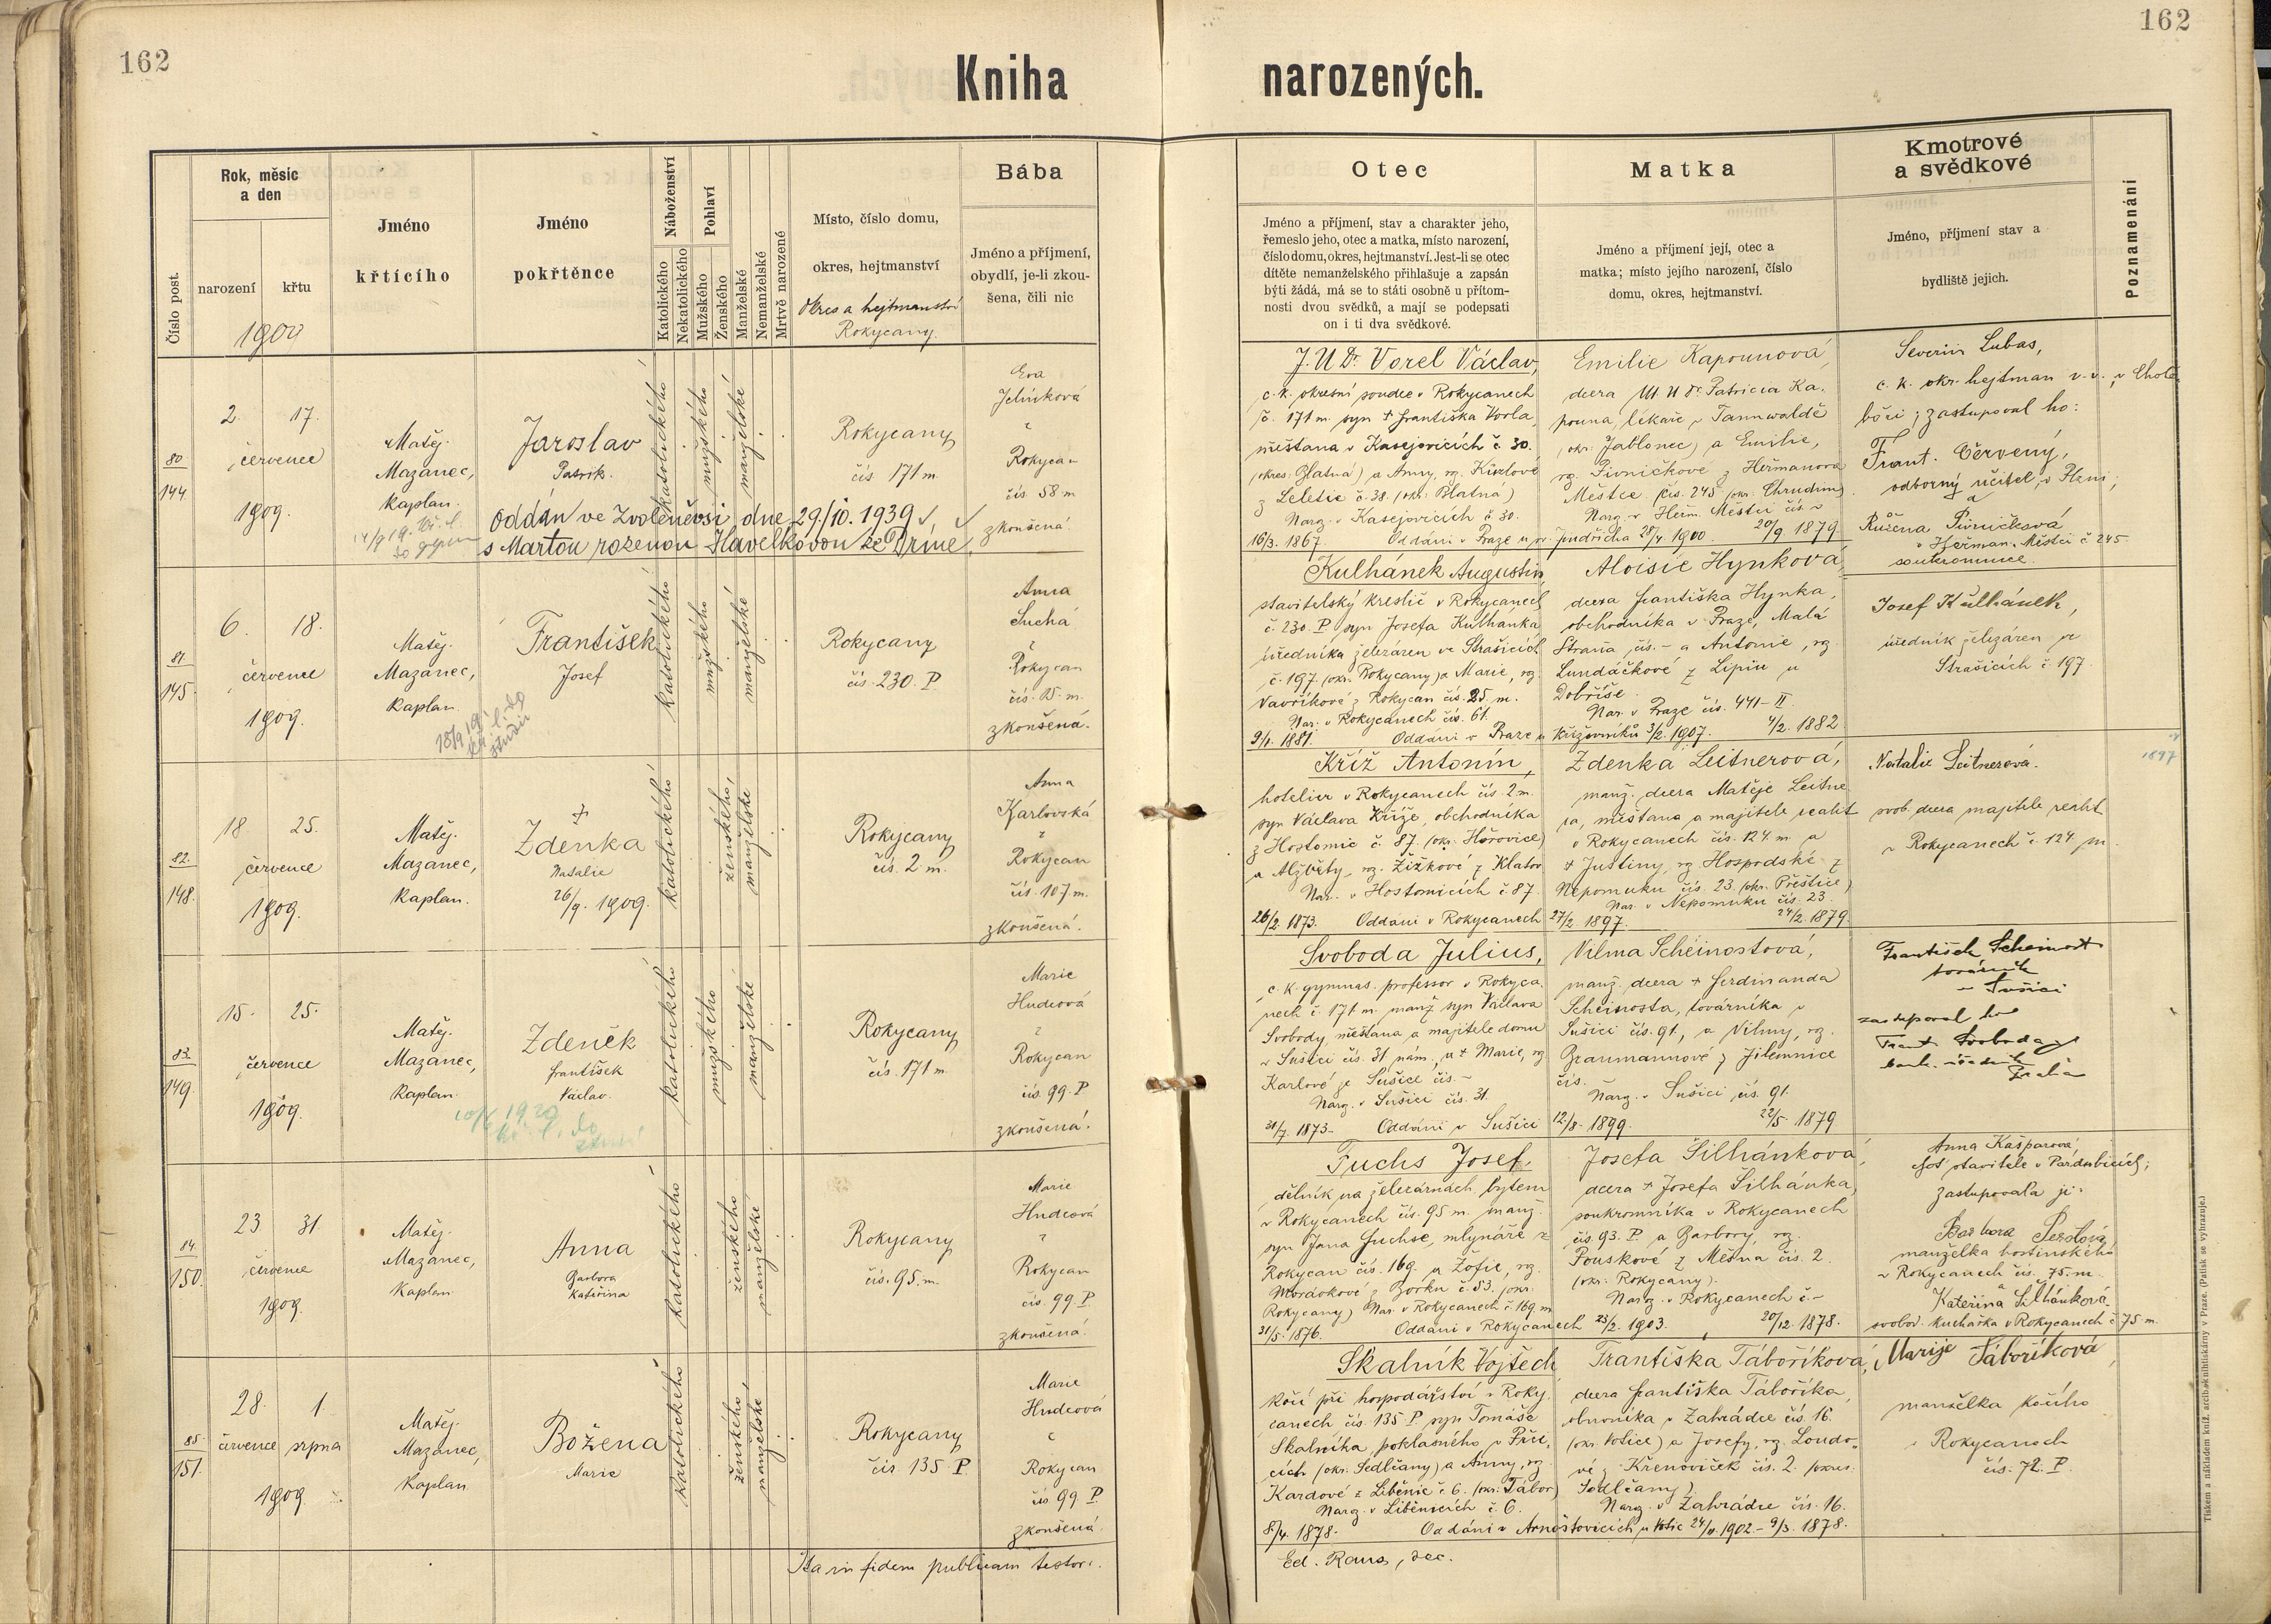 162
162
Kniha
narozených.
Číslo post.
Rok, měsíc
a den
narození
křtu
1909
Jméno
křtícího
Jméno
pokřtěnce
Náboženství
Katolického
Nekatolického
Pohlaví
Mužského
Ženského
Manželské
Nemanželské
Mrtvě narozené
Místo, číslo domu,
okres, hejtmanství
Okres a hejtmanství
Rokycany.
Bába
Jméno a příjmení,
obydlí, je-li zkou-
šena, čili nic
Otec
Jméno a příjmení, stav a charakter jeho,
řemeslo jeho, otec a matka, místo narození,
číslo domu, okres, hejtmanství. Jest-li se otec
dítěte nemanželského přihlašuje a zapsán
býti žádá, má se to státi osobně u přítom-
nosti dvou svědků, a mají se podepsati
on i ti dva svědkové.
Matka
Jméno a příjmení její, otec a
matka; místo jejího narození, číslo
domu, okres, hejtmanství.
Kmotrové
a svědkové
Jméno, příjmení stav a
bydliště jejich.
Poznamenání
80
144
2. 17.
července
1909.
Matěj
Mazanec,
Kaplan.
Jaroslav
Patrik.
Oddán ve Zvoleněvsi dne 29./10. 1939
s Martou rozenou Havelkovou ze Drině
katolického
mužského
manželské
Rokycany
čís 171 m.
Eva
Jelínková
z
Rokycan
čís. 58 m
zkoušená.
J.U.Dr. Vorel Václav,
c. k. okresní soudce v Rokycanech
č. 171 m. syn † Františka Vorla,
měšťana v Kasejovicích č 30.
(okres. Blatná) a Anny, rz.
z Leletic č. 38. (okr. Blatná)
Narz. v Kasejovicích č 30.
16/3. 1867. Oddáni v Praze u sv. Jindřicha 28/4 1900. 20/9 1879
Emilie Kapounová,
dcera M.U.Dr. Patricia Ka-
pouna, lékaře v Tannwaldě
(okr. Jablonec) a Emilie,
rz. Pivničkové z Heřmanova
Městce čís. 245 (okr. Chrudim)
Narz. v Heřm. Městci čís. -
Severin Lubas,
c. k. okr. hejtman v. v. v Chotě-
boři; zastupoval ho:
Frant. Červený,
odborný učitel v Plzni;
a
Růžena Pivničková
v Heřman. Městci č 245
soukromnice.
81.
145.
6. 18.
července
1909.
Matěj
Mazanec,
Kaplan.
František
Josef
katolického
mužského
manželské
Rokycany
čís. 230. P.
Anna
Suchá
z
Rokycan
čís. 15. m.
zkoušená.
Kulhánek Augustin,
stavitelský kreslič v Rokycanech
č. 230. P. syn Josefa Kulhánka
úředníka železáren ve Strašicích
č. 197. (okr. Rokycany) a Marie, rz.
Vavříkové z Rokycan čís. 25. m.
Nar. v Rokycanech čís. 61.
9/1. 1881. Oddáni v Praze u Křižovníků 3/2. 1907. 4/2. 1882
Aloisie Hynková,
dcera Františka Hynka,
obchodníka v Praze, Malá
Strana čís. - a Antonie, rz.
Lundáčkové z Lipin u
Dobříše.
Nar. v Praze čís. 441-II
Josef Kulhánek,
úředník železáren ve
Strašicích č 197.
82.
148.
18 25.
července
1909.
Matěj
Mazanec,
Kaplan.
†
Zdenka
Natalie
26/9. 1909.
katolického
ženského
manželské
Rokycany
čís. 2 m.
Anna
Karlovská
z
Rokycan
čís. 107 m.
zkoušená.
Kříž Antonín,
hotelier v Rokycanech čís. 2 m.
syn Václava Kříže, obchodníka
z Hostomic č. 87. (okr. Hořovice)
a Alžběty, rz. Žižkové z Klatov
Nar. v Hostomicích č. 87.
26/2. 1873. Oddáni v Rokycanech 27/2 1897. 24/2. 1879.
Zdenka Leitnerová,
manž. dcera Matěje Leitne-
ra, měšťana a majitele realit
v Rokycanech čís. 124. m. a
† Justiny rz. Hospodské z
Nepomuku čís. 23. (okr. Přeštice)
Nar. v Nepomuku čís. 23.
Natalie Leitnerová.
svob. dcera majitele realit
v Rokycanech č. 124 m.
1897
83.
149.
15. 25.
července
1909.
Matěj
Mazanec,
Kaplan.
Zdeněk
František
Václav.
katolického
mužského
manželské
Rokycany
čís. 171 m.
Marie
Hudcová
z
Rokycan
čís. 99. P
zkoušená.
Svoboda Julius,
c. k. gymnas. professor v Rokyca-
nech č. 171 m. manž. syn Václava
Svobody, měšťana a majitele domu
v Sušici čís. 31 nám., a † Marie, rz.
Karlové ze Sušice čís. -
Narz. v Sušici čís. 31.
31/7. 1873. Oddáni v Sušici 12/8. 1899. 22/5 1879
Vilma Scheinostová,
manž. dcera † Ferdinanda
Scheinosta, továrníka v
Sušici čís. 91., a Vilmy, rz.
Graumannové z Jilemnice
čís.
Narz. v Sušici čís. 91.
František Scheinost
továrník
v Sušici
zastupoval ho
Frant. Svoboda
bank. úředník
Praha
84.
150.
23. 31.
července
1909.
Matěj
Mazanec,
Kaplan
Anna
Barbora
Kateřina
katolického
ženského
manželské
Rokycany
čís. 95. m.
Marie
Hudcová
z
Rokycan
čís. 99 P.
zkoušená.
Fuchs Josef,
dělník na železárnách, bytem
v Rokycanech čís. 95 m. manž.
syn Jana Fuchse, mlynáře z
Rokycan čís. 169. a Žofie, rz.
z Borku č 53. (okr.
Rokycany) Nar. v Rokycanech č. 169. m
31/5. 1876. Oddáni v Rokycanech 23/2. 1903. 20/12. 1878.
Josefa Šilhánková,
dcera † Josefa Šilhánka,
soukromníka v Rokycanech
čís. 93. P. a Barbory, rz.
Pouskové z Měšna čís. 2.
(okr. Rokycany).
Narz. v Rokycanech č. -
Anna Kašparová
choť stavitele v Pardubicích;
zastupovala ji:
Barbora
manželka hostinského
v Rokycanech čís. 75. m.
a
Kateřina Šilhánková
svobod. kuchařka v Rokycanech č 75 m.
85.
151.
28. 1.
července srpna
1909.
Matěj
Mazanec,
Kaplan
Božena
Marie
katolického
ženského
manželské
Rokycany
čís. 135. P.
Marie
Hudcová
z
Rokycan
čís. 99 P.
zkoušená.
Skalník Vojtěch
kočí při hospodářství v Roky-
canech čís. 135 P. syn Tomáše
Skalníka, poklasného v Prči-
cích (okr. Sedlčany) a Anny, rz.
Kardové z Liběnic č. 6. (okr. Tábor)
Narz. v Liběnicích č. 6.
8/4. 1878. Oddáni v Arnoštovicích u Votic 24/11. 1902 - 9/3. 1878.
Františka Táboříková,
dcera Františka Táboříka,
obuvníka v Zahrádce čís. 16.
(okr. Votice) a Josefy, rz. Loudo-
vé z Křenoviček čís. 2. (okres:
Sedlčany).
Narz. v Zahrádce čís. 16.
Marije Táboříková
manželka kočího
v Rokycanech
čís. 72. P.
Ita in fidem publicam testor:
Ed. Rous, dec.
Tiskem a nákladem kníž. arcib. knihtiskárny v Praze. (Patisk se vyhrazuje.)